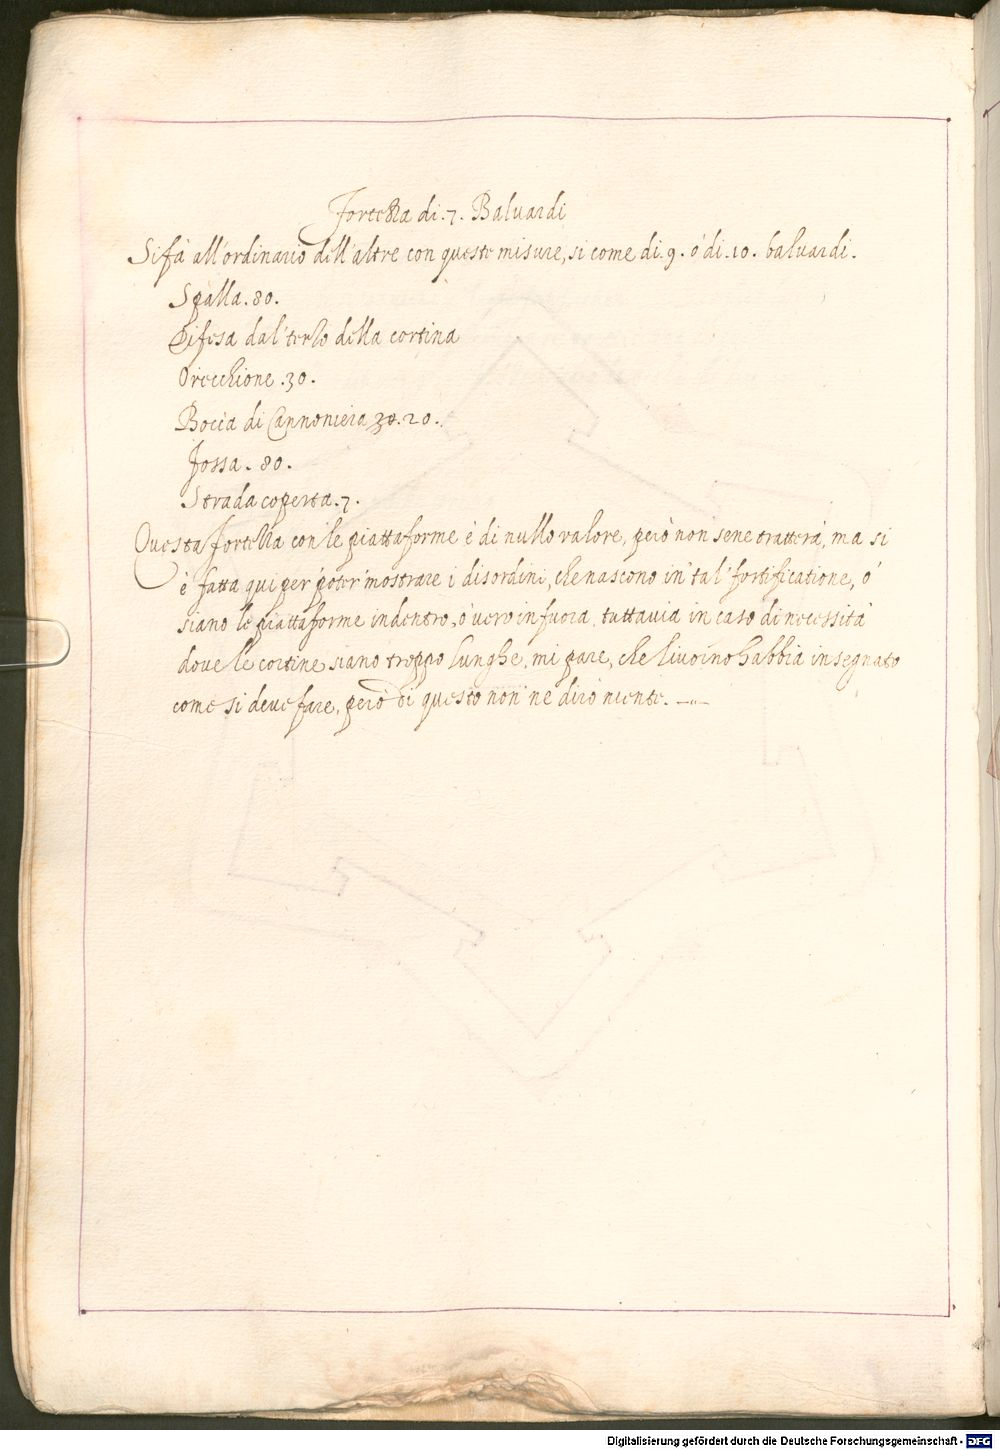 Fortezza di .7. Baluardi
Si fà all'ordinario dell'altre con queste misure, si come di .9. ò di .10. baluardi.
Spalla .80.
Difesa dal terzo della cortina
Orecchione .30.
Bocca di Cannoniera 30. 20.
Fossa. 80.
Strada coperta .7.
Questa Fortezza con le piattaforme è di nullo valore, però non se ne tratterà, ma si
è fatta qui per poter mostrare i disordini, che nascono in tal fortificatione, ò
siano le piattaforme in dentro, ò vero in fuora, tuttavia in caso di necessità
dove le cortine siano troppo lunghe, mi pare, che habbia insegnato
come si deve fare, però di questo non ne dirò niente.
Digitalisierung gefördert durch die Deutsche Forschungsgemeinschaft - DFG